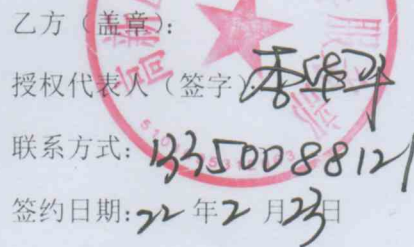 乙方（盖章）：
授权代表人（签字）
联系方式：13350088121
签约日期：22年2月23日